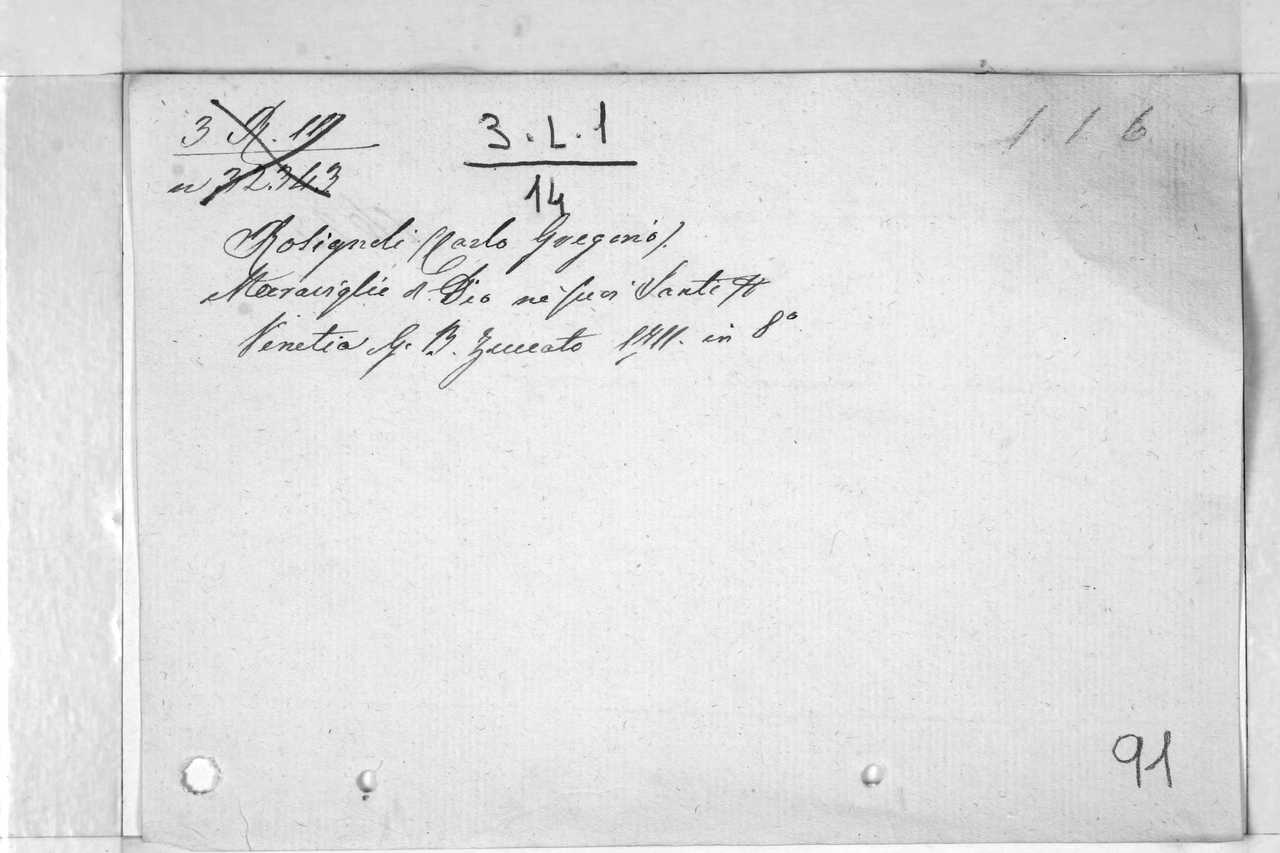 3 R. 17
n 32.343
3.L.1
14
1 1 6
Rosignoli (Carlo Gregorio).
Maraviglie di Dio ne' suoi Santi
Venetia G. B. Zuccato 1711. in 8°
91